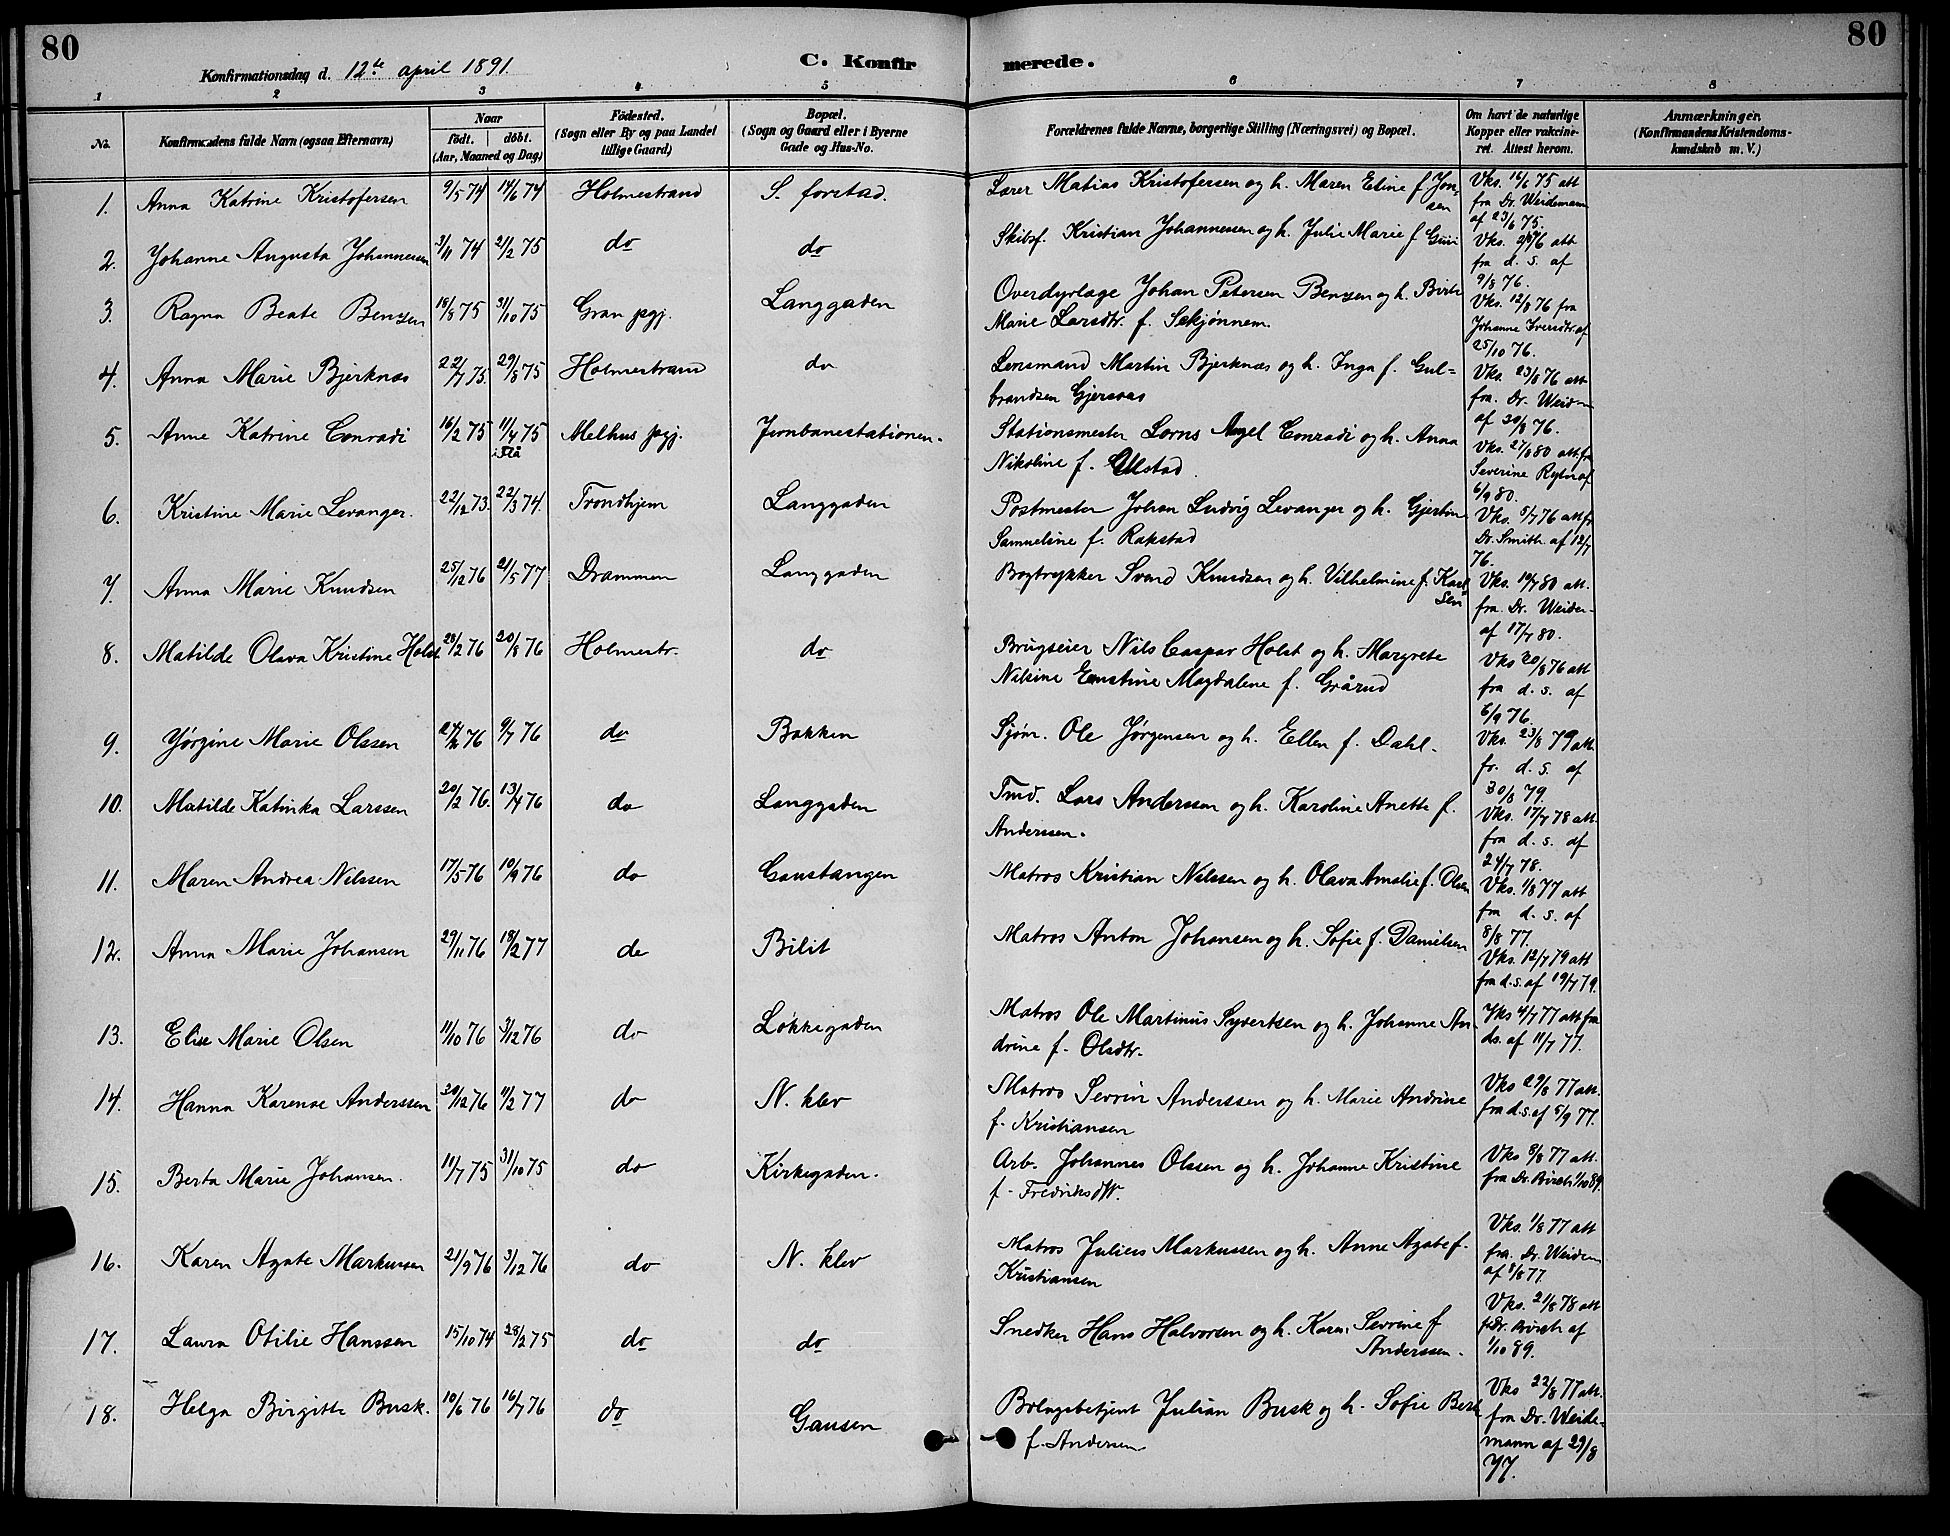 80
80
Konfirmationsdag d. 12te april 1891.
C. Konfirmerede.
1 2 3 4 5 6 7 8
No.
Konfirmandens fulde Navn (ogsaa Efternavn)
Naar født. døbt. (Aar, Maaned og Dag)
Fødested. (Sogn eller By og paa Landet tillige Gaard)
Bopæl. (Sogn og Gaard eller i Byerne Gade og Hus-No.
Forældrenes fulde Navne, borgerlige Stilling (Næringsvei) og Bopæl.
Om havt de naturlige Kopper eller vakcineret. Attest herom.
Anmærkninger. (Konfirmandens Kristendomskundskab m. V.)
1. Anna Katrine Kristofersen 9/5 74 14/6 74 Holmestrand S. forstad. Lærer Matias Kristofersen og h. Maren Eline f. Jonsen Vks. 16/6 75 att fra Dr. Weidemann af 23/6 75.
2. Johanne Augusta Johannesen 3/11 74 21/2 75 do do Skibsf. Kristian Johannessen og h. Julie Marie f. Vks. 76 att fra d. s. af 9/8 76.
3. Ragna Beate Benzen 18/8 75 31/10 75 Gran pgj. Langgaden Overdyrlæge Johan Petersen Benzen og h. Birte Marie Larsdtr. f. Skjønnem. Vks. 12/8 76 fra Johanne Iversdtr. af 25/10 76.
4. Anna Marie Bjerknæs 22/7 75. 29/8 75 Holmestrand do Lensmand Martin Bjerknæs og h. Inga f. Gulbrandsen Gjersøas Vks. 23/8 76 att fra. Dr. Weidem af 30/8 76.
5. Anne Katrine Conradi 16/2 75 11/4 75 i Flå Melhus pgj. Jernbanestationen. Stationsmester Lorns Angel Conradi og h. Anna Nikoline f. Ulstad. Vks. 27/8 80 att. fra Severine af 6/9 80.
6. Kristine Marie Levanger. 22/12 73. 22/3 74. Trondhjem Langgaden Postmester Johan Ludvig Levanger og h. Gjertine Samueline f. Rakstad Vks. 5/7 76 att fr Dr. Smith. af 12/7 76.
7. Anna Marie Knudsen 25/12 76 21/5 77 Drammen Langgaden Bogtrykker Svend Knudsen og h. Vilhelmine f. Karlsen Vks. 10/7 80 att. fra. Dr. Weidem af 17/7 80.
8. Matilde Olava Kristine Holst 28/2 76 20/8 76 Holmestr. do Brugseier Nils Caspar Holst og h. Margrete Nilsine Ernstine Magdalene f. Grårud Vks 30/8 76 att fra d. s. af 6/9 76.
9. Jørgine Marie Olssen 76 9/7 76 do Bakken Sjøm. Ole Jørgensen og h. Ellen f. Dahl. Vks. 23/8 79 att. fr. d. s. af 30/8 79.
10. Matilde Katinka Larssen 20/2 76. 13/4 76 do Langgaden Tmd. Lars Anderssen og h. Karoline Anette f. Anderssen. Vks. 17/7 78 att. fra d. s. af 24/7 78.
11. Maren Andrea Nilssen 17/5 76 10/9 76 do Gaustangen Matros Kristian Nilssen og h. Olava Amalie f. Olsen Vks. 1/8 77 att fra d. s. af 8/8 77.
12. Anna Marie Johansen 29/11 76 18/2 77 do Bilit Matros Anton Johansen og h. Sofie f. Danielsen Vks. 12/7 79 att fra d. s. af 19/7 79.
13. Elise Marie Olsen 11/10 76 3/12 76 do Løkkegaden Matros Ole Martinus Syvertsen og h. Johanne Andrine f. Olsdtr. Vks 4/7 77 att fra ds. af 11/7 77.
14. Hanna Karense Anderssen 20/12 76 11/2 77 do N. klev Matros Sevrin Anderssen og h. Marie Andrine f. Kristiansen Vks 29/8 77 att. fra d. s. af 5/9 77.
15. Berta Marie Johansen. 11/7 75 31/10 75 do Kirkegaden. Arb. Johannes Olssen og h. Johanne Kristine f. Fredriksdtr. Vks 8/8 77 att. fra Dr. Birch 1/10 89.
16. Karen Agate Markussen 21/9 76 3/12 76 do N. klev Matros Julius Markussen og h. Anne Agate f. Kristiansen Vks. 1/8 77 att fra. Dr. Weidem af 8/8 77.
17. Laura Otilie Hanssen 15/10 74 28/2 75 do do Snedker Hans Halvorsen og h. Karen Sevrine f Anderssen. Vks. 21/8 78 att f. Dr. Birch af 1/10 89.
18. Helga Birgitte Busk. 10/6 76 16/7 76 do Gausen Bolagsbetjent Julian Busk og h. Sofie Berte f. Andersen Vks 22/8 77 att. fra Dr. Weidemann af 29/8 77.